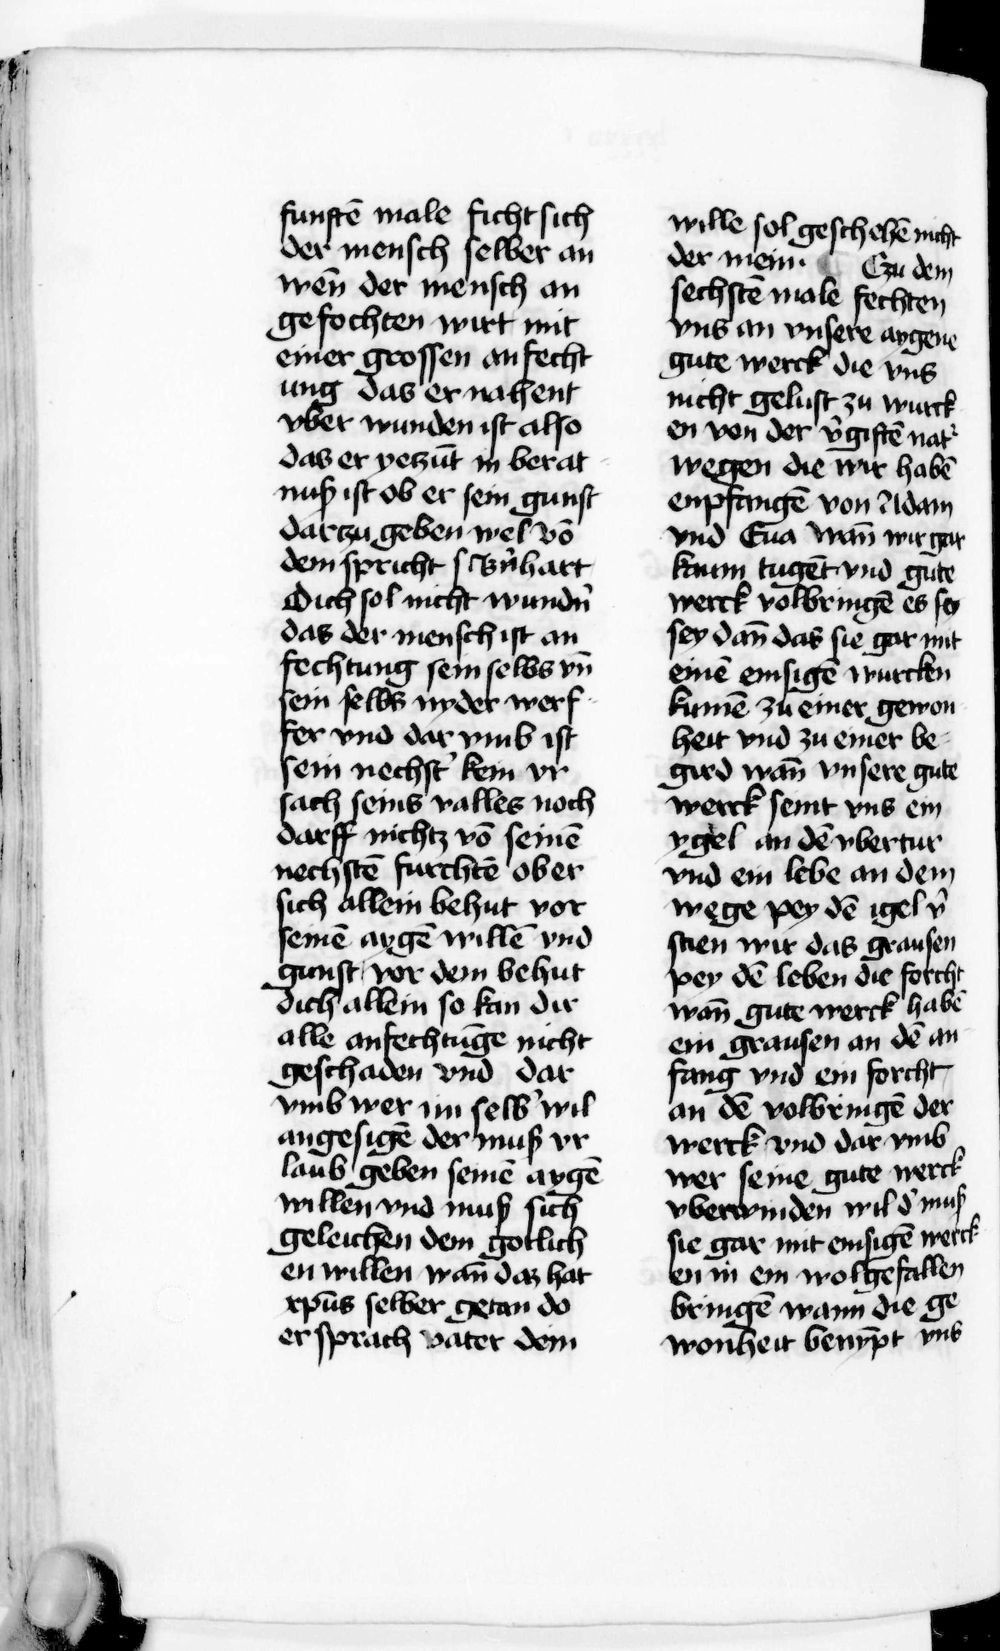 funftē male ficht sich
der mensch selber an
wēn der mensch an
gefochten wirt mit
einer grossen anfecht
ung das er nahent
vber wunden ist also
das er yetzūt in berat
nuß ist ob er sein gunst
dartzu geben wel vō
dem spricht s Bn̄hart
Dich sol nicht wundn̄
das der mensch ist an
fechtung sein selbs vn̄
sein selbs nyder werf
fer vnd dar vmb ist
sein nechst' kein vr
sach seins valles noch
darff nichtz vō seinē
nechstē furchtē ob er
sich allein behut vor
seinē aygē willē vnd
gunst vor dem behut
dich allein so kan dir
alle anfechtūge nicht
geschaden vnd dar
vmb wer im selb' wil
angesigē der muß vr
laub geben seinē aygē
willen vnd muß sich
geleichen dem gotlich
en willen wan̄ daz hat
xpūs selber getan do
er sprach vater dein
wille sol geschehē nicht
der mein. Czu dem
sechstē male fechten
vns an vnsere aygene
gute werck die vns
nicht gelust zu wurck
en von der v̄giftē nat'
wegen die wir habē
enpfangē von Adam
vnd Eua Wan̄ wir gar
kaum tugēt vnd gute
werck volbringē es sey
sey dan̄ das sie gar mit
einē emsigē wurcken
kumē zu einer gewon
heit vnd zu einer be
gird wan̄ vnsere gute
werck seint vns ein
ygel an dē vbertur
vnd ein lebe an dem
wege pey dē igel v̄
sten wir das grausen
pey dē leben die forcht
wan̄ gute werck habē
ein grausen an dē an
fang vnd ein forcht
an dē volbringē der
werck vnd dar vmb
wer seine gute werck
vberwinden wil d' muß
sie gar mit emsigē werck
en in ein wolgefallen
bringē wann die ge
wonheit benȳpt vns